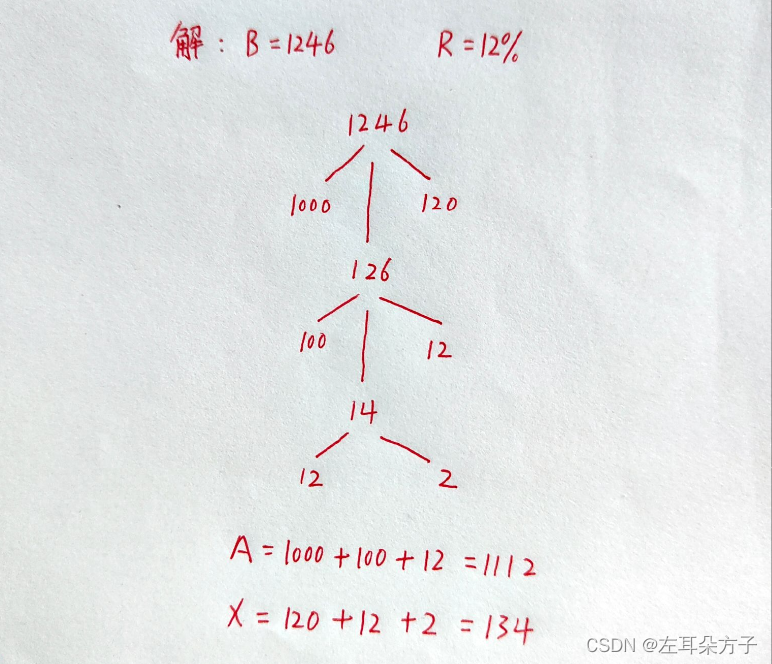 解：B=1246 R=12%
1246
1000 120
126
100 12
14
12 2
A=1000+100+12=1112
X=120+12+2=134
CSDN @左耳朵方子